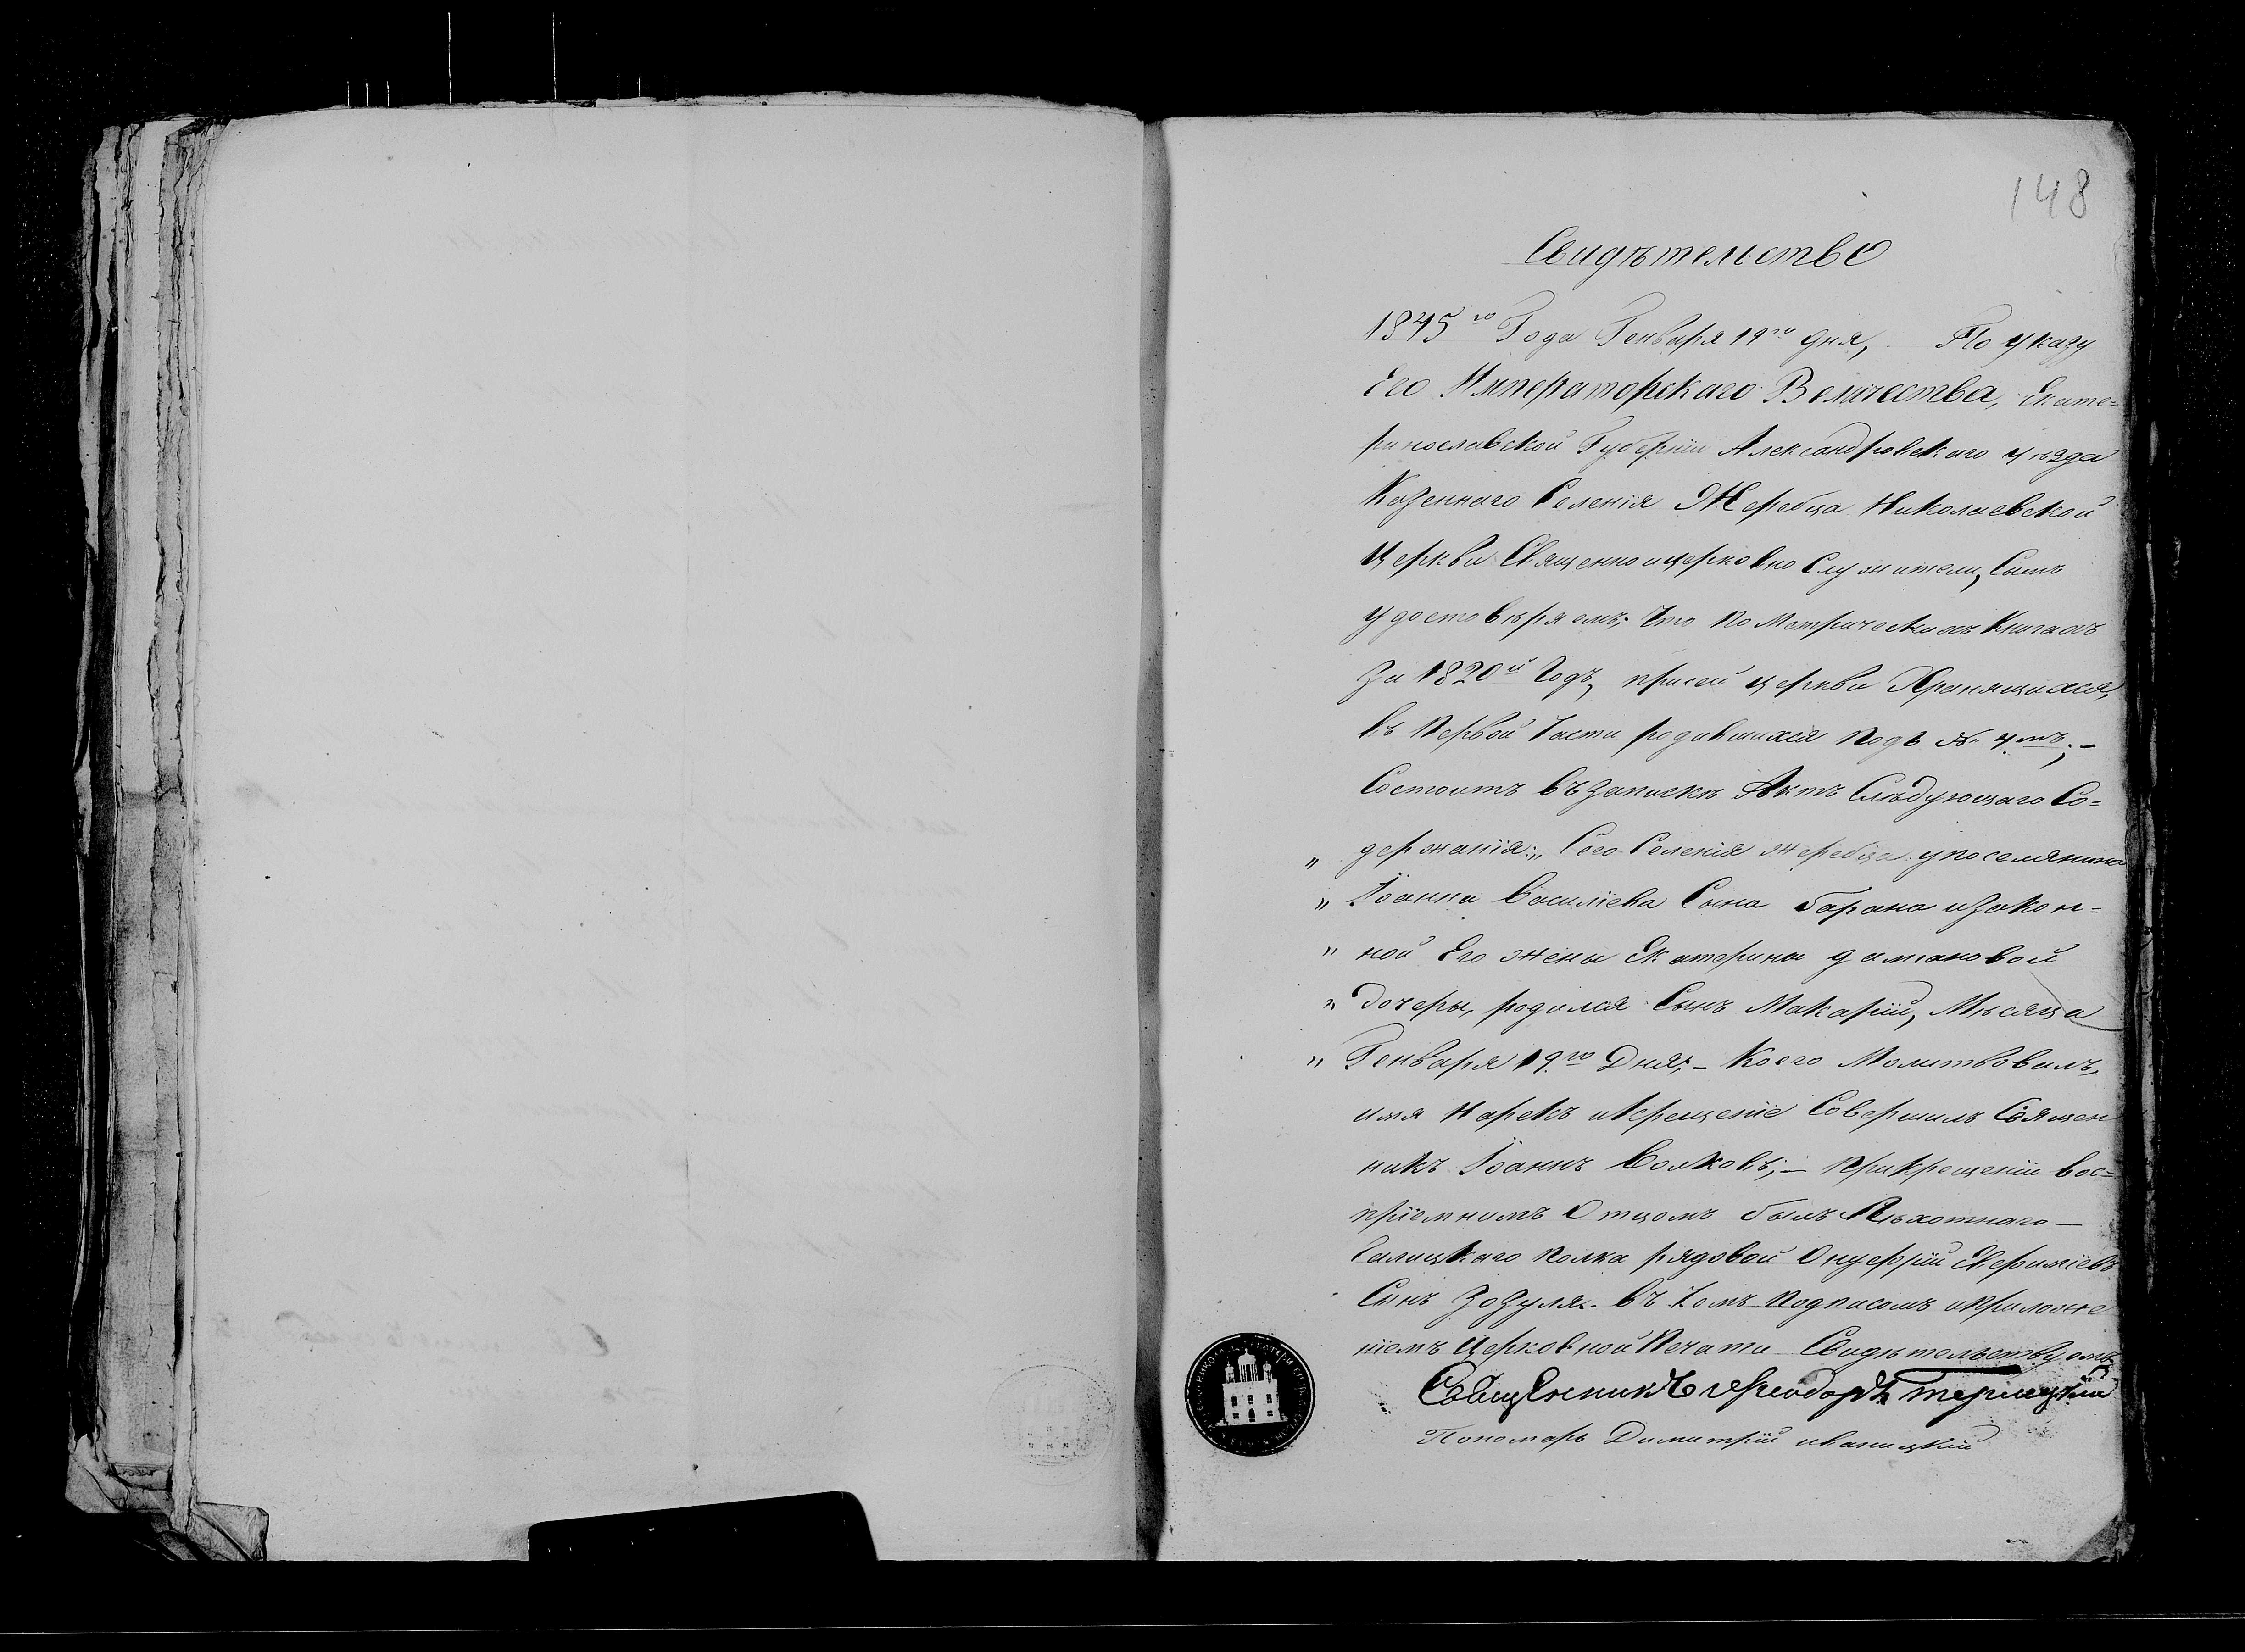 148
Свидѣтельство
1845го Года Генваря 19го дня, По указу
Его Императорскаго Величества, Екате=
ринославской Губерніи Александровскаго уѣзда
Казеннаго Селенія Жеребца Николаевской
Церкви Священноицерковно Служители, Симъ
удостовѣряемъ; Что по Метрическихъ Книгахъ
За 1820й Годъ, присей церкви Хранящихся,
въ Первой Части родившихся подъ № 4мъ;–
Состоитъ въ запискѣ Актъ Слѣдующаго Со=
„ держанія: „ Сего Селенія жеребца упоселянина
„ Іоанна Василіева Сына барана изакон=
„ ной Его жены Екатерины даміановой
„ дочеры, родился Сынъ Макарій, Мѣсяца
„ Генваря 19го Дня;– Коего Молитвовалъ,
имя Нарекъ икрещеніе Совершилъ Священ
никъ Іоаннъ Волковъ;– прикрещеніи вос=
пріемнимъ Отцомъ былъ Пѣхотнаго–
Галицкаго полка рядовой Онуфрій
Сынъ Зозуля. Въ Чемъ подписомъ иприложе
ніемъ Церковной Печати Свидѣтельствуемъ
Священникъ Феодоръ
Пономарь Димитрій иваницкій